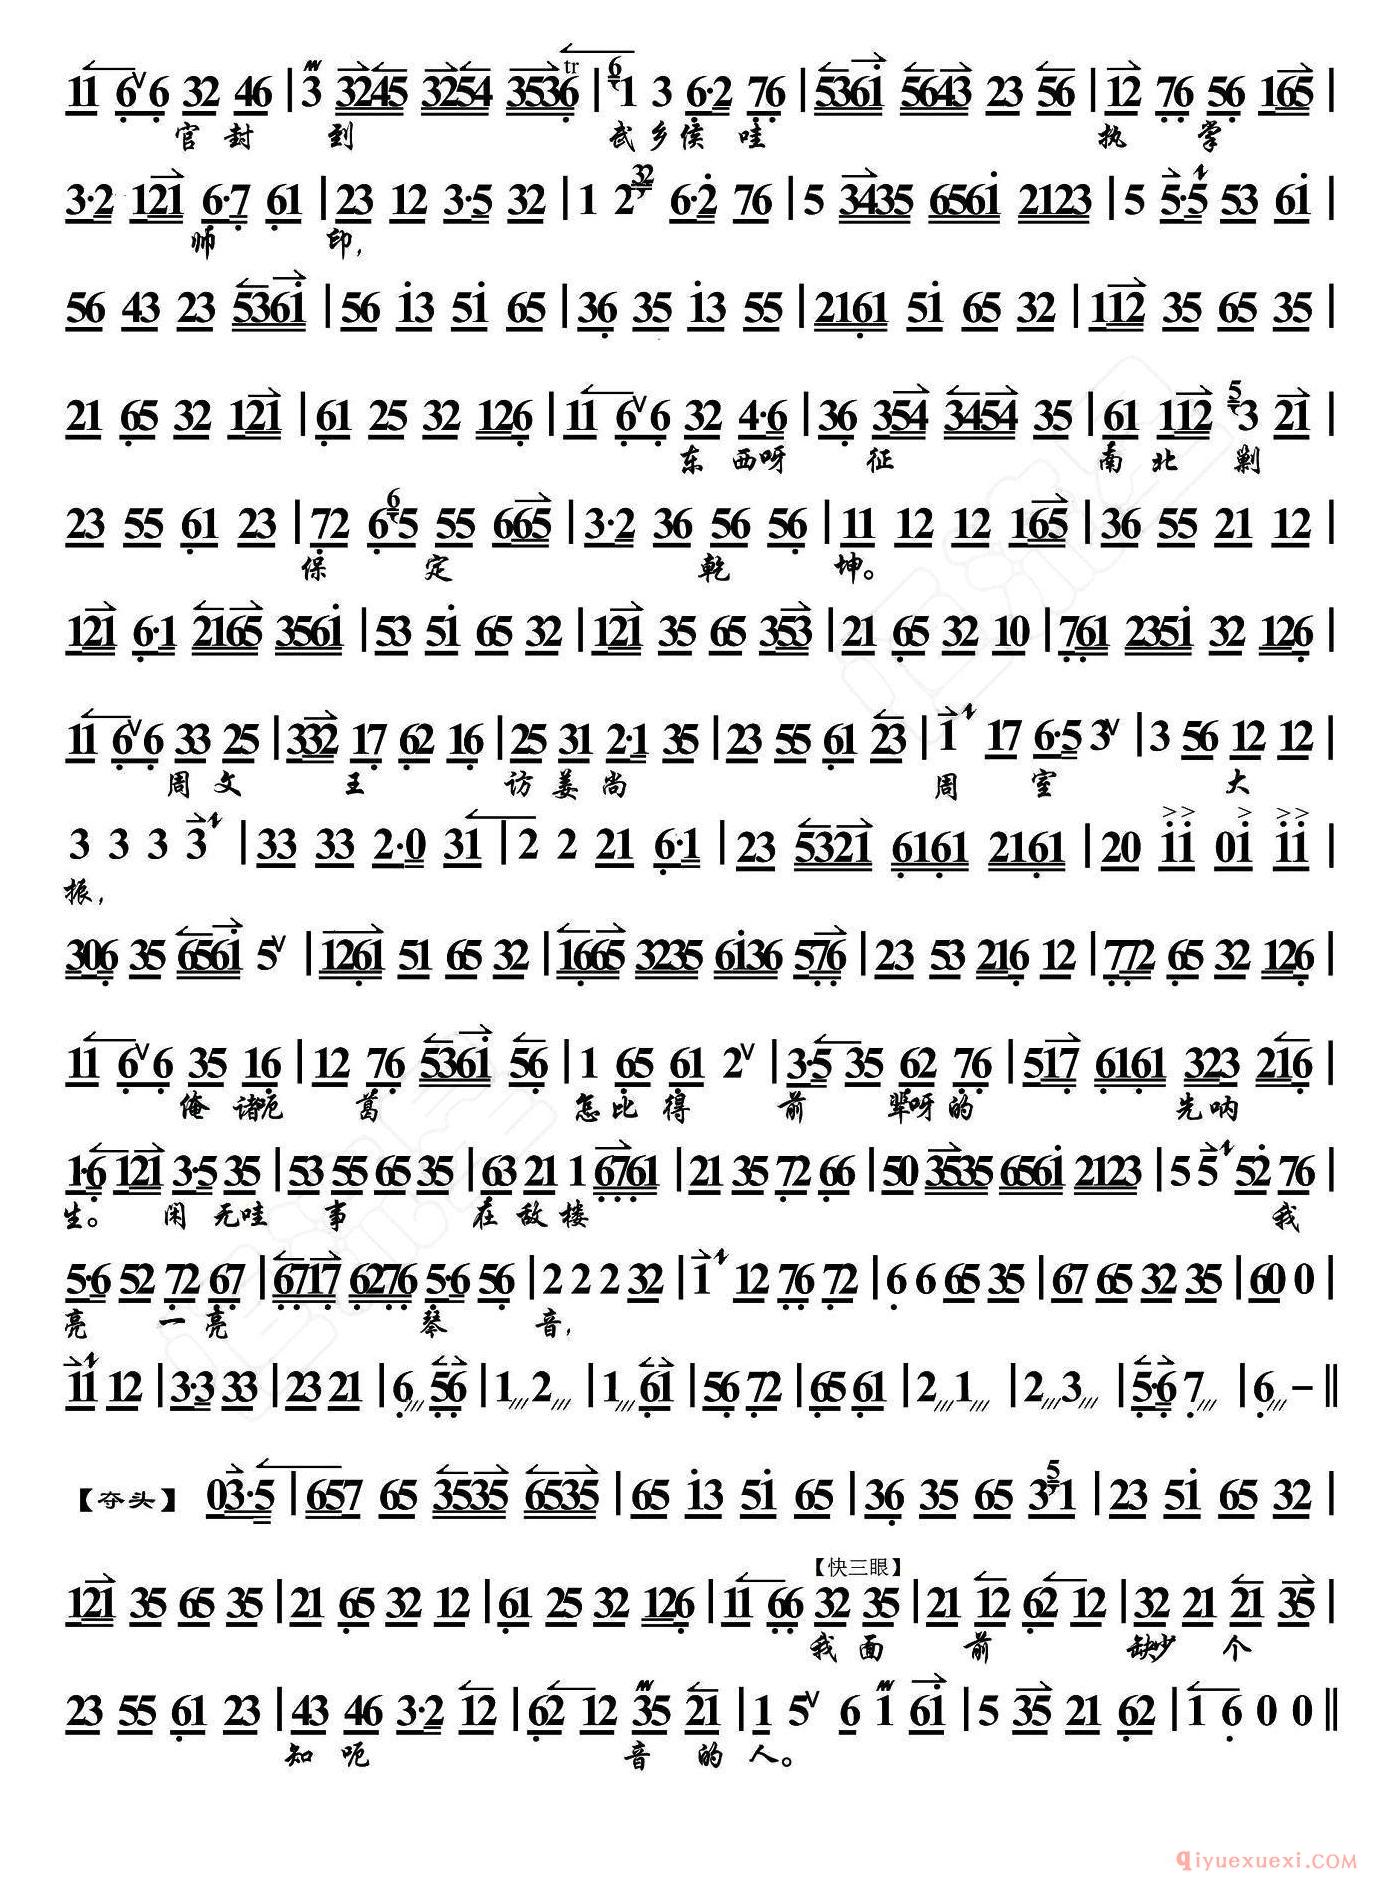 11 66 32 46 | 3 3245 3254 3536 | 61 3 6·2 76 | 5361 5643 23 56 | 12 76 56 165 |
官封 到 武乡侯 哇 执 掌
3·2 121 6·7 61 | 23 12 3·5 32 | 1 2 32 6·2 76 | 5 3435 6561 2123 | 5 5·5 53 61 |
帅 印,
56 43 23 5361 | 56 13 51 65 | 36 35 13 55 | 2161 51 65 32 | 112 35 65 35 |
21 65 32 121 | 61 25 32 126 | 11 66 32 4·6 | 36 354 3454 35 | 61 112 53 21 |
东 西呀 征 南 北 剿
23 55 61 23 | 72 665 55 665 | 3·2 36 56 56 | 11 12 12 165 | 36 55 21 12 |
保 定 乾 坤。
121 6·1 2165 3561 | 53 51 65 32 | 121 35 65 353 | 21 65 32 10 | 761 2351 32 126 |
11 66 33 25 | 332 17 62 16 | 25 31 2·1 35 | 23 55 61 23 | 1 17 6·5 3 | 3 56 12 12 |
周 文 王 访 姜 尚 周 室 大
3 3 3 3 | 33 33 2·0 31 | 2 2 21 6·1 | 23 5321 6161 2161 | 20 11 01 11 |
振,
306 35 6561 5 | 1261 51 65 32 | 1665 3235 6136 576 | 23 53 216 12 | 772 65 32 126 |
11 66 35 16 | 12 76 5361 56 | 1 65 61 2 | 3·5 35 62 76 | 517 6161 323 216 |
俺 诸呃 葛 怎比 得 前 辈呀的 先呐
1·6 121 3·5 35 | 53 55 65 35 | 63 21 1 6761 | 21 35 72 66 | 50 3535 6561 2123 | 5 5 52 76 |
生。 闲 无哇 事 在 敌 楼 我
5·6 52 72 67 | 6717 6276 5·6 56 | 2 2 2 32 | 1 12 76 72 | 6 6 65 35 | 67 65 32 35 | 60 0 |
亮 一 亮 琴 音,
11 12 | 3·3 33 | 23 21 | 6 56 | 1 2 | 1 61 | 56 72 | 65 61 | 2 1 | 2 3 | 5·6 7 | 6 – ‖
【夺头】 03·5 | 657 65 3535 6535 | 65 13 51 65 | 36 35 65 351 | 23 51 65 32 |
【快三眼】
121 35 65 35 | 21 65 32 12 | 61 25 32 126 | 11 66 32 35 | 21 12 62 12 | 32 21 21 35 |
我 面 前 缺少 个
23 55 61 23 | 43 46 3·2 12 | 62 12 35 21 | 1 5 6 1 61 | 5 35 21 62 | 1 6 0 0 ‖
知 呃 音 的 人。
qiyuexuexi.COM